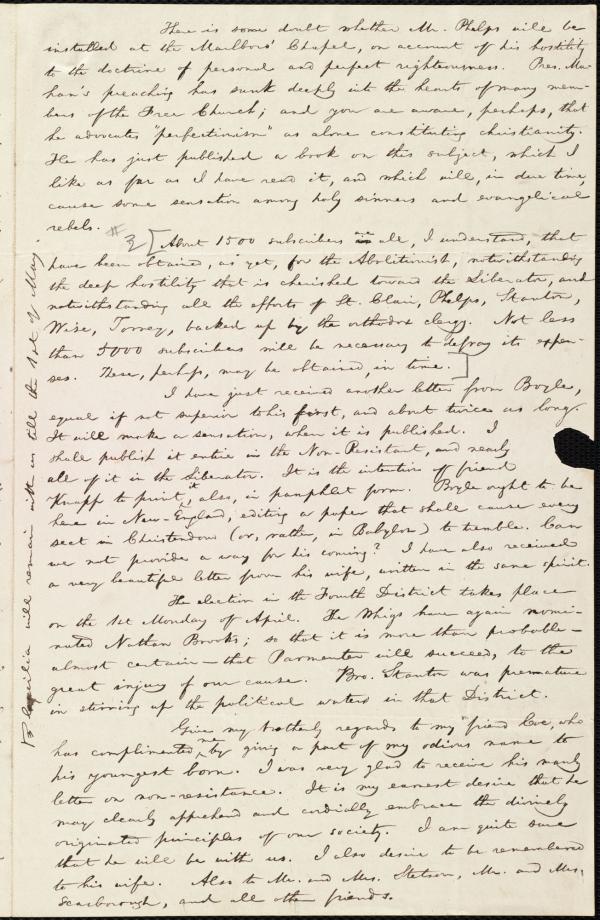 There is some doubt whether Mr. Phelps will be
installed at the Marlboro' Chapel, on account of his hostility
to the doctrine of personal and perfect righteousness. Pres. Ma-
han's preaching has sunk deeply into the hearts of many mem-
bers of the Free Church; and you are aware, perhaps, that
he advocates "perfectionism" as alone constituting christianity.
He has just published a book on this subject, which I
like as far as I have read it, and which will, in due time,
cause some sensation among holy sinners and evangelical
rebels.
[About 1500 subscribers are all, I understand, that
have been obtained, as yet, for the Abolitionist, notwithstanding
the deep hostility that is cherished toward the Liberator, and
notwithstanding all the efforts of St. Clair, Phelps, Stanton,
Wise, Torrey, backed up by the orthodox clergy. Not less
than 5000 subscribers will be necessary to defray its expen-
ses. These, perhaps, may be obtained, in time.]
I have just received another letter from Boyle,
equal if not superior to his first, and about twice as long.
It will make a sensation, when it is published. I
shall publish it entire in the Non-Resistant, and nearly
all of it in the Liberator. It is the intention of friend
Knapp to print it, also, in pamphlet form. Boyle ought to be
here in New-England, editing a paper that shall cause every
sect in Christendom (or, rather, in Babylon) to tremble. Can
we not provide a way for his coming? I have also received
a very beautiful letter from his wife, written in the same spirit.
The election in the Fourth District takes place
on the 1st Monday of April. The Whigs have again nomi-
nated Nathan Brooks; so that it is more than probable—
almost certain—that Parmenter will succeed, to the
great injury of our cause. Bro. Stanton was premature
in stirring up the political waters in that District.
Give my brotherly regards to my friend Coe, who
has complimented me by giving a part of my odious name to
his youngest born. I was very glad to receive his manly
letter on non-resistance. It is my earnest desire that he
may clearly apprehend and cordially embrace the divinely
originated principles of our society. I am quite sure
that he will be with us. I also desire to be remembered
to his wife. Also to Mr. and Mrs. Stetson, Mr. and Mrs.
Scarborough, and all other friends.
will remain with us till the 1st of May.